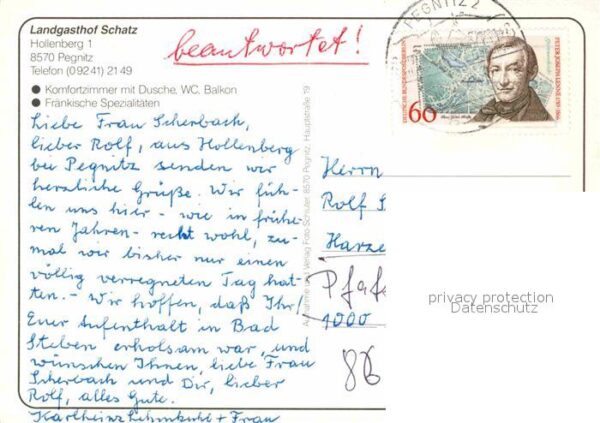 Landgasthof Schatz
Hollenberg 1
8570 Pegnitz
Telefon (09241) 2149
● Komfortzimmer mit Dusche, WC, Balkon
● Fränkische Spezialitäten
beantwortet!
Liebe Frau Scherbach,
lieber Rolf, aus Hollenberg
bei Pegnitz senden wir
herzliche Grüße. Wir füh-
len uns hier - wie in frühe-
ren Jahren - recht wohl, zu-
mal wir bisher nur einen
völlig verregneten Tag hat-
ten. - Wir hoffen, daß Ihr/
Euer Aufenthalt in Bad
Steben erholsam war, und
wünschen Ihnen, liebe Frau
Scherbach und Dir, lieber
Rolf, alles Gute.
Karlheinz + Frau
Verlag Foto Schuster, 8570 Pegnitz, Hauptstraße 19
PEGNITZ 2
DEUTSCHE BUNDESPOST BERLIN
60
PETER JOSEPH LENNÉ 1789-1866
Herrn
Rolf S
Harze
Pfafe
1000
86
privacy protection
Datenschutz